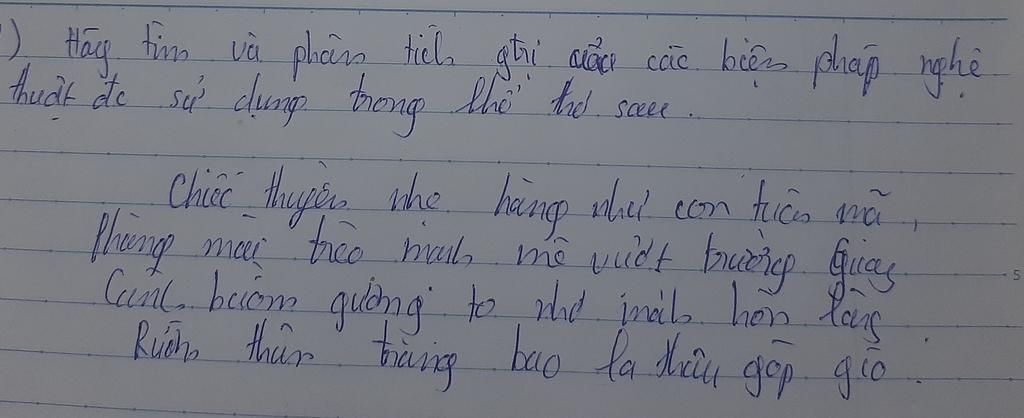 ) Hãy tìm và phân tích gtrị của các biện pháp nghệ
thuật đc sử dụng trong khổ thơ sau.
Chiếc thuyền nhẹ hăng như con tuấn mã,
Phăng mái chèo mạnh mẽ vượt trường Giang
Cánh buồm giương to như mảnh hồn làng
Rướn thân trắng bao la thâu góp gió.